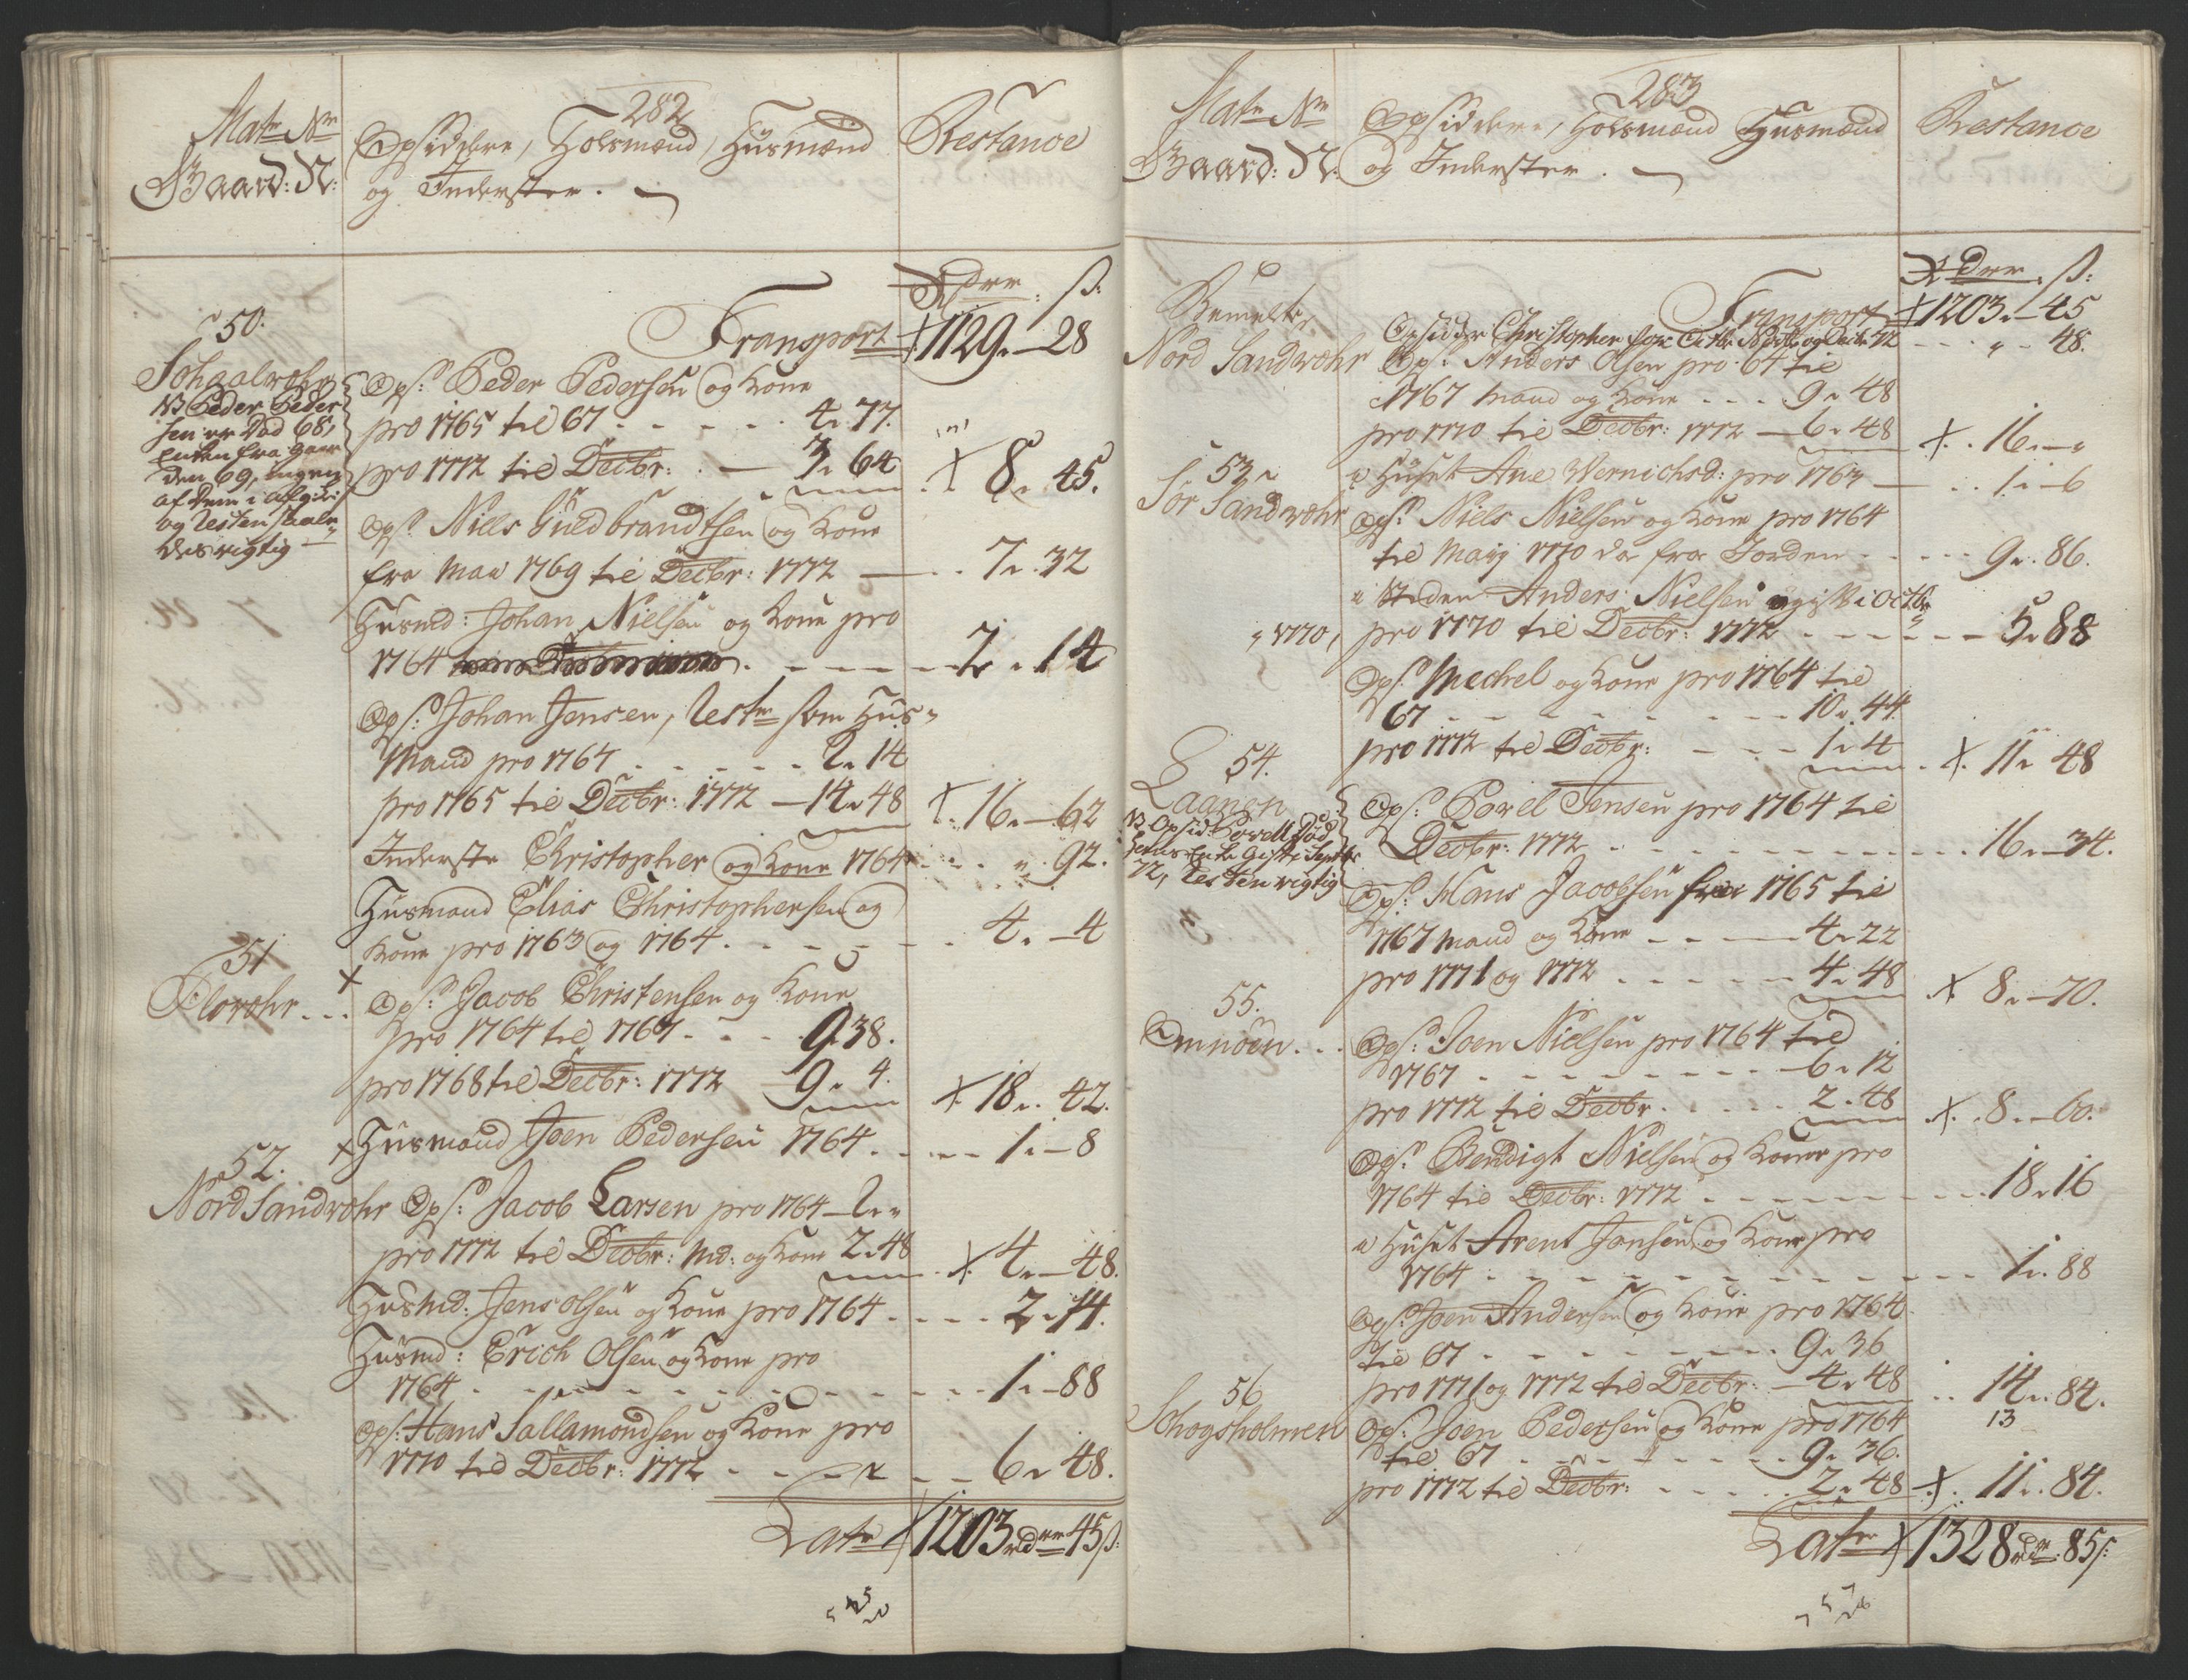 282
Matr Nr
Gaard: N:
Opsiddere, Holsmænd, Huusmænd
og Inderster.
Restance
Rdrr: ß:
Transport 1129 - 28
50.
NB Peder Peder
sen er Død 68,
Enken fra gaar
den 69, ingen
af Dem i
og Resten saale
des rigtig
Ops: Peder Pedersen og Kone
pro 1765 til 67 - - - 4. 77.
pro 1772 til Decbr: - 3. 64 8. 45.
Ops: Niels Guldbrandtsen og Kone
fra Maii 1769 til Decbr: 1772 - 7. 32
Husmd: Johan Nielsen og Kone pro
1764 - - - 2. 14
Ops: Johan Jensen, Restr som Huus-
Mand pro 1764 - - - 2. 14
pro 1765 til Decbr: 1772 - 14. 48 16. - 62
Inderste Christopher og Kone 1764 - - „. 92.
Husmand Elias Christophersen og
Kone pro 1763 og 1764 - - - 4. - 4
51
Ops: Jacob Christensen og Kone
pro 1764 til 1767 - - - 9. 38.
pro 1768 til Decbr: 1772 9. 4. 18. 42.
Husmand Joen Pedersen 1764 - - - 1. - 8
52.
Nord Sandwæhr Ops: Jacob Larsen pro 1764 - 2. „
pro 1772 til Decbr: Md: og Kone 2. 48 4. - 48.
Husmd: Jens Olsen og Kone pro 1764 - - - 2. 14.
Husmd: Erich Olsen og Kone pro
1764 - - - 1. - 88
Ops: Hans Sallamondsen og Kone pro
1770 til Decbr: 1772 - - - 6. 48.
Latr 1203 rdrr 45 ß:
283
Matr Nr
Gaard: N:
Opsiddere, Holsmænd Huusmænd
og Inderster.
Restance
Rdrr. ß:
Transport 1203. - 45
Bemelte
Nord Sandwæhr
Opsidder Christopher for Octbr Novbr og Decbr 72 - - „ - 48.
Ops: Anders Olsen pro 64 til
1767 Mand og Kone - - - 9. 48
pro 1770 til Decbr: 1772 - 6. 48 16. - „
i Huset Ane Wernichsd: pro 1767 - 1. - 6
53.
Sør Sandwæhr
Ops: Niels Nielsen og Kone pro 1764
til Maij 1770 da fra Jorden - - - 9. 86.
i Steden Anders Nielsen i Octbr
„ 1770, pro 1770 til Decbr: 1772 - - - 5. 88
Ops: Mechel og Kone pro 1764 til
67 - - - 10. 44
pro 1772 til Decbr: - - - 1. 4 11. 48
54.
Laanen
NB Opsid: Powell Død
hans Enke Gift i Septbr
72, Resten rigtig
Ops: Powel Jensen pro 1764 til
Decbr: 1772 - - - 16. - 34.
Ops: Hans Jacobsen fra 1765 til
1767 Mand og Kone - - - 4. 22
pro 1771 og 1772 - - - 4. 48 8. - 70.
55.
Omnöen
Ops: Joen Nielsen pro 1764 til
1767 - - - 6. 12
pro 1772 til Decbr. - - - 2. 48 8. - 60.
Ops: Bendigt Nielsen og Kone pro
1764 til Decbr: 1772 - - - 18. 16
i Huset Arent Jansen og Kone pro
1764 - - - 1. 88
Ops: Joen Andersen og Kone pro 1764
til 67 - - - 9. 36
pro 1771 og 1772 til Decbr: - 4. 48 14. 84.
13
56
Schogsholmen
Ops: Joen Pedersen og Kone pro 1764
til 67 - - - 9. 36.
pro 1772 til Decbr: - - - 2. 48 11. 84.
Latr 1328 rdr. 85 ß: